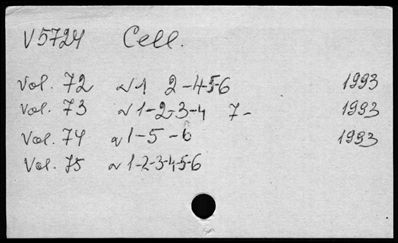 V5724 Cell.
Vol. 72 N 1 2-4-5-6 1993
Vol. 73 N 1-2-3-4 7- 1993
Vol. 74 N 1-5-6 1993
Vol. 75 N 1-2-3-4-5-6